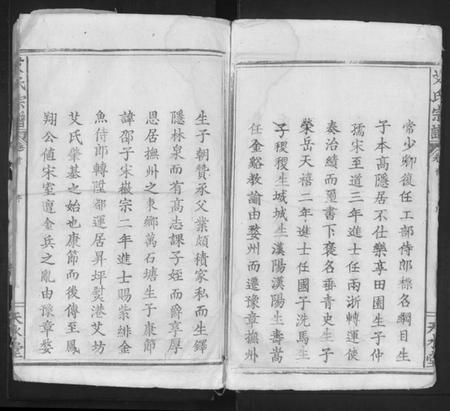 艾氏宗譜
常少卿復任工部侍郎標名綱目生
子本高隱居不仕樂享田園生子仲
孺宋至道三年進士任兩浙轉運使
奏治績而璽書下褒名垂青史生子
榮岳天禧二年進士任國子洗馬生
子稷稷生城城生漢陽漢陽生壽嵩
任金谿教諭由婺州而遷豫章撫州
天水堂
艾氏宗譜
生子朝贊承父業頗積家私而生鐸
隱林泉而有高志課子姪而爵享厚
恩居撫州之東鄉萬石塘生子康節
諱邵子宋嶽宗二年進士賜紫緋金
魚侍郎轉陞都運居昇坪熨港艾坊
艾氏肇基之始也康節而後傳至鳳
翔公值宋室遭金兵之亂由豫章婺
天水堂